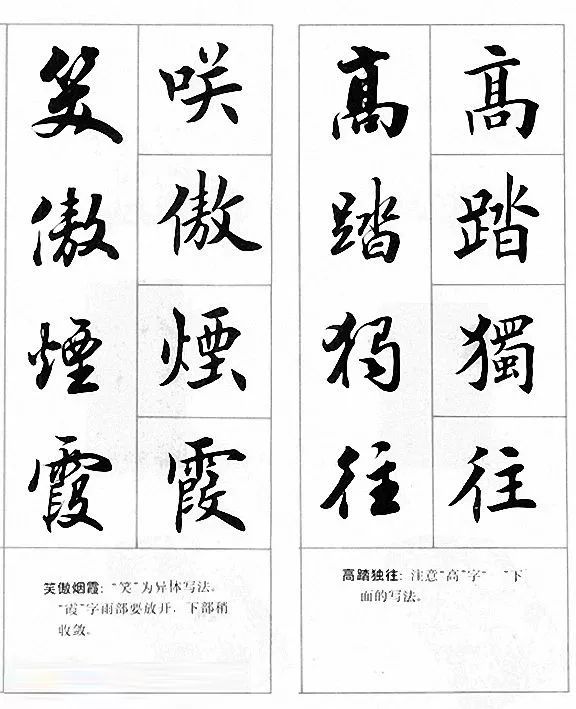 髙踏獨往
髙踏独往
高踏独往：注意“高”字“ ”下
面的写法。
咲傲煙霞
笑傲煙霞
笑傲烟霞：“笑”为异体写法。
“霞”字雨部要放开，下部稍
收敛。